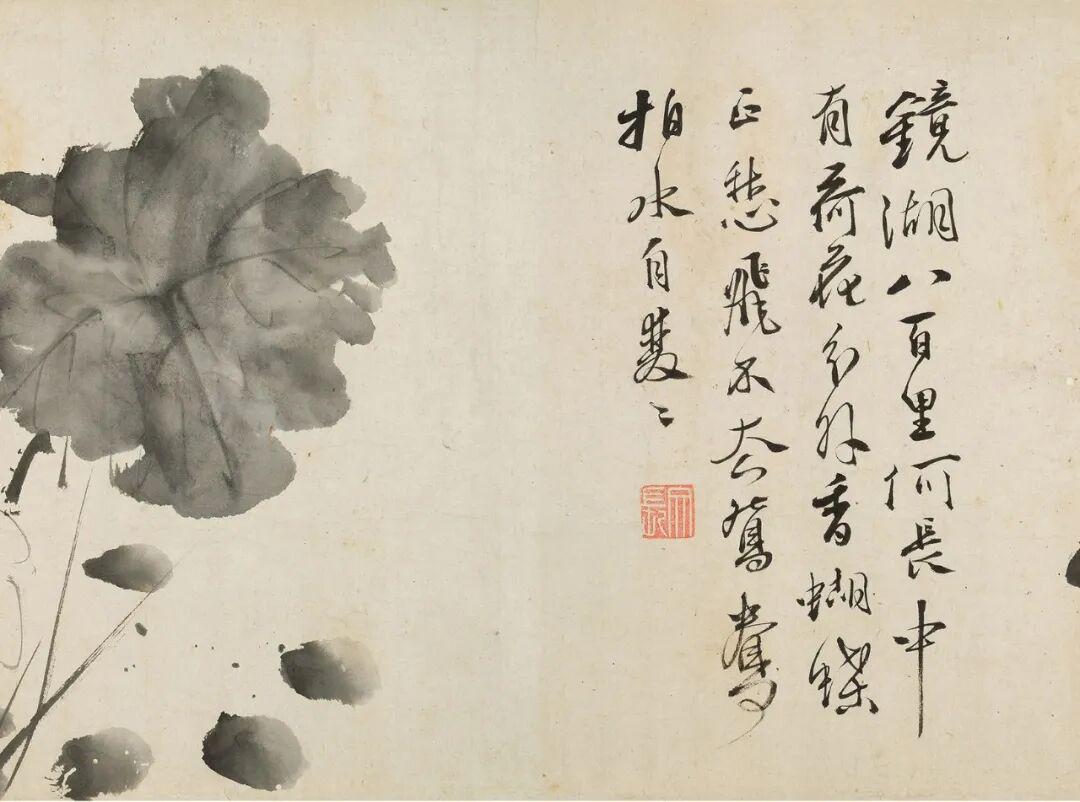 鏡湖八百里何長中
有荷花分外香蝴蝶
正愁飛不鴛鴦
拍水自雙々
文長